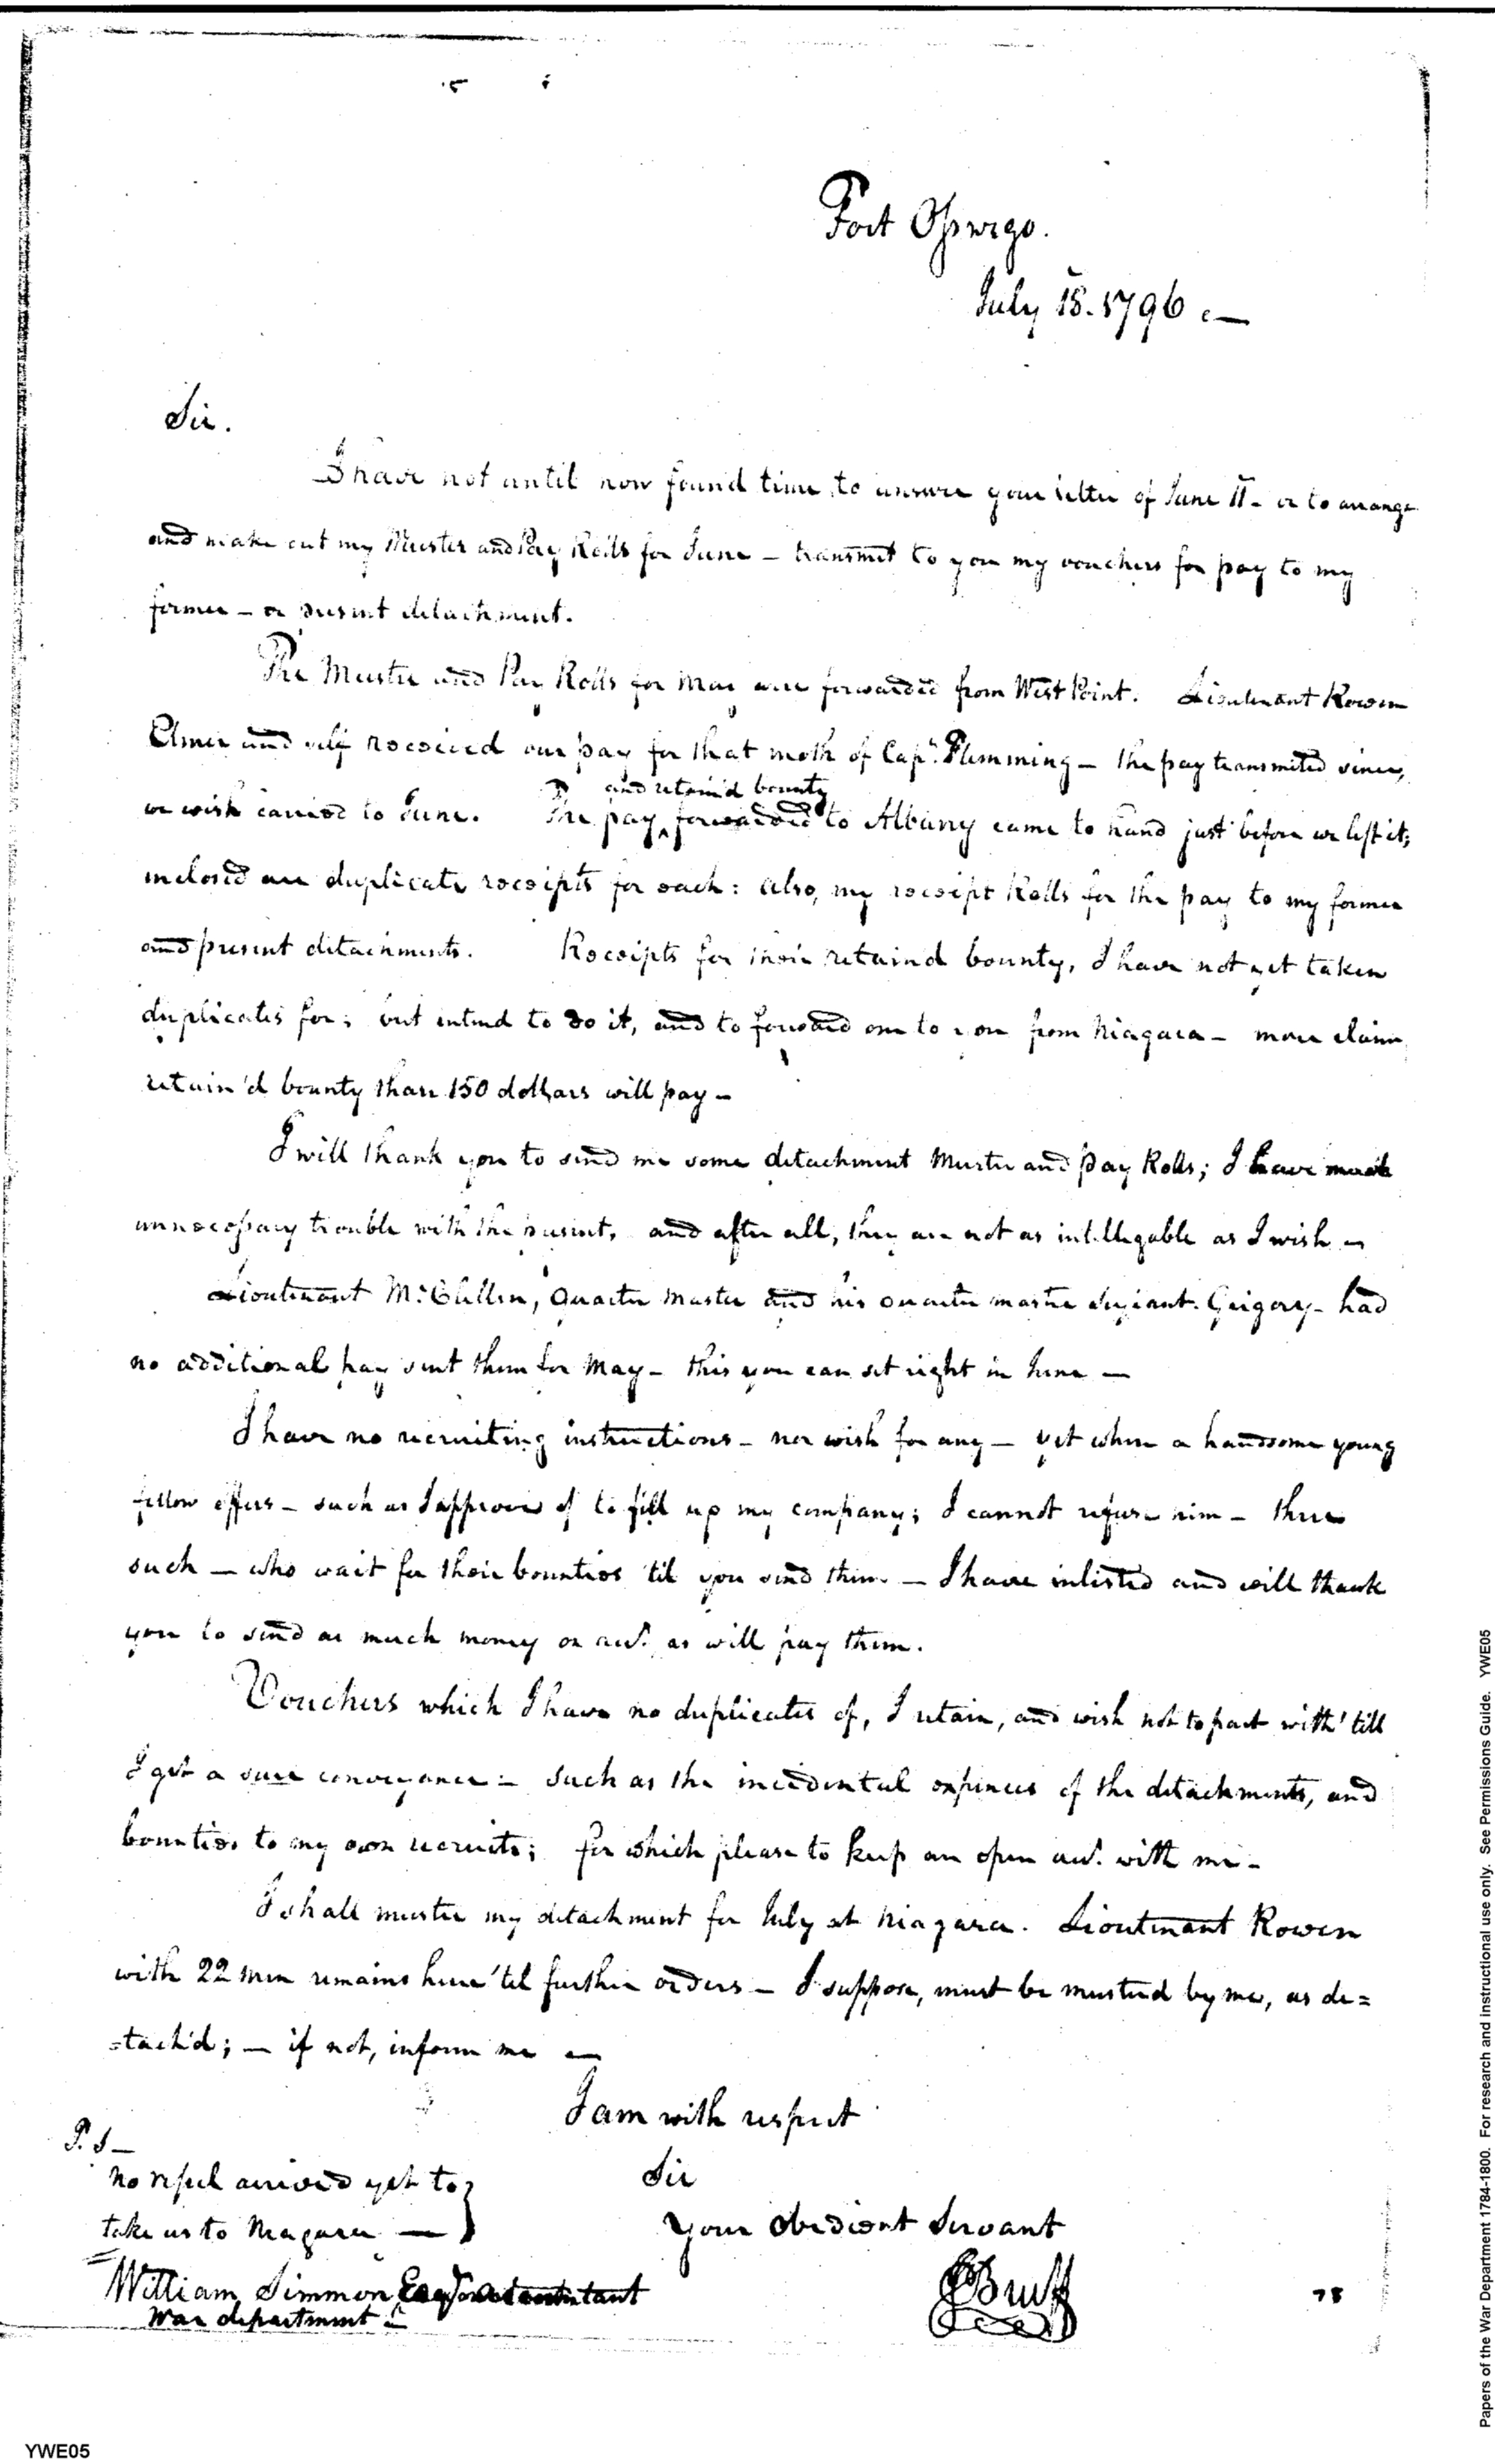 Fort Oswego.
July 15. 1796 —
Sir.
I have not until now found time to answer your letter of June 11 - or to arrange
and make out my Muster and Pay Rolls for June - transmit to you my vouchers for pay to my
former - or present detachment.
The Muster and Pay Rolls for May were forwarded from West Point. Lieutenant Rowen
Elmer and self received our pay for that moth of Capn. Flemming - the pay transmited since,
we wish carried to June. The pay ^ and retain'd bounty forwarded to Albany came to hand just before we left it;
inclosed are duplicate receipts for each: also, my receipt Rolls for the pay to my former
and present detachments. Receipts for their retaind bounty, I have not yet taken
duplicates for; but intend to do it, and to forward one to you from Niagara - more claim
retain'd bounty than 150 dollars will pay -
I will thank you to send me some detachment Muster and Pay Rolls; I have made
unnecessary trouble with the present, and after all, they are not as intellegable as I wish -
Lieutenant Mc.Cullen, Quarter Master and his quarter master Serjeant. Grigory - had
no additional pay sent them for May - this you can set right in June —
I have no recruiting instructions - nor wish for any - yet when a handsome young
fellow offers - such as I approve of to fill up my company; I cannot refuse him - three
such - who wait for their bounties 'til you send them - I have inlisted and will thank
you to send as much money on acct. as will pay them.
Vouchers which I have no duplicates of, I retain, and wish not to part with 'till
I get a sure conveyance - such as the incidental expences of the detachments, and
bounties to my own recruits; for which please to keep an open acct. with me -
I shall muster my detachment for July at Niagara. Lieutenant Rowen
with 22 men remains here 'til further orders - I suppose, must be musterd by me, as de=
=tach'd; - if not, inform me —
I am with respect
Sir
Your Obedient Servant
JBruff
P.S —
No vessel arrived yet to
take us to Niagara —
William Simmon Esqr. accountant
War department
78
YWE05
Papers of the War Department 1784-1800. For research and instructional use only. See Permissions Guide. YWE05